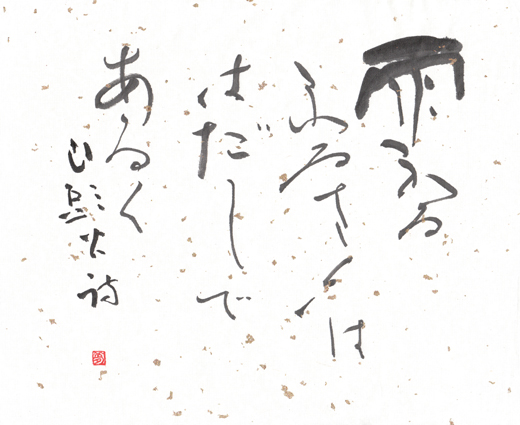 雨ふる
ふるさとは
はだしで
あるく
山頭火詩